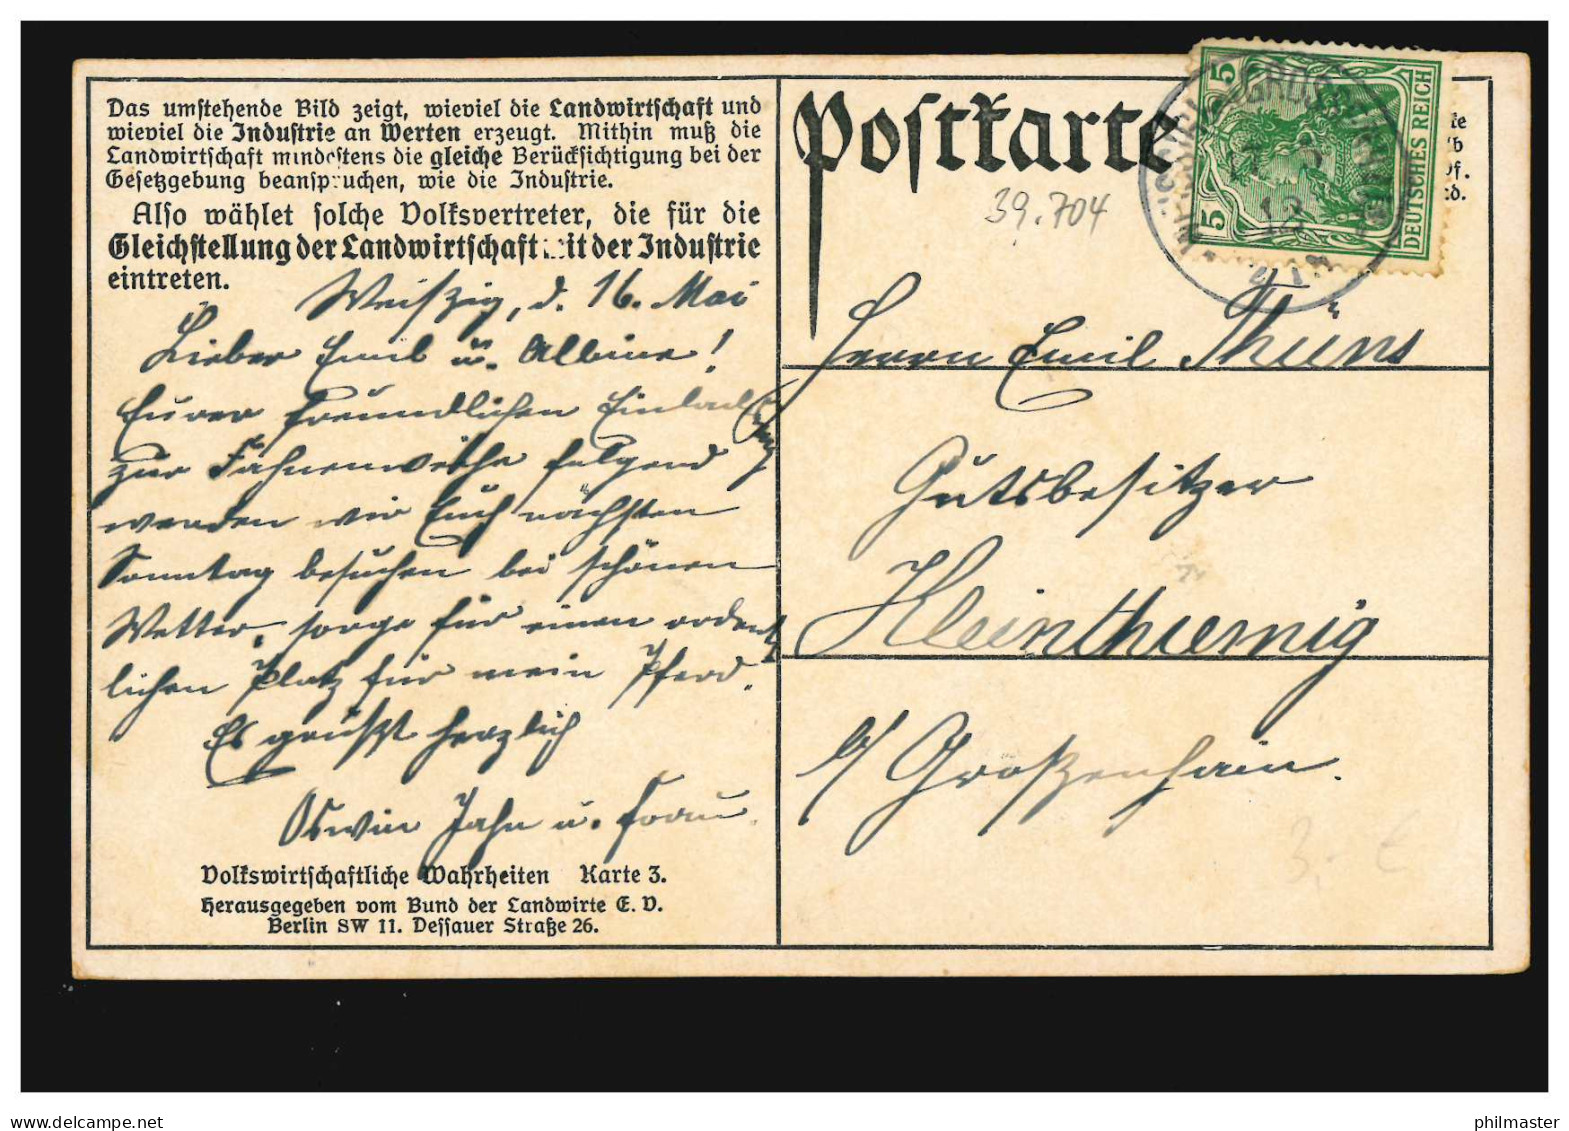 Das umstehende Bild zeigt, wieviel die Landwirtschaft und
wieviel die Industrie an Werten erzeugt. Mithin muß die
Landwirtschaft mindestens die gleiche Berücksichtigung bei der
Gesetzgebung beanspruchen, wie die Industrie.
Also wählet solche Volksvertreter, die für die
Gleichstellung der Landwirtschaft mit der Industrie
eintreten.
Weißig, d. 16. Mai
Lieber Emil u. Albine!
Eurer freundlichen Einladung
zur Fahnenweihe folgend
werden wir Euch nächsten
Sonntag besuchen bei schönen
Wetter, sorge für einen ordent
lichen Platz für mein Pferd.
Es grüßt herzlich
Oswin Jahn u. Frau.
Volkswirtschaftliche Wahrheiten Karte 3.
Herausgegeben vom Bund der Landwirte E. V.
Berlin SW 11. Dessauer Straße 26.
Postkarte
39.704
5 5
DEUTSCHES REICH
Herrn Emil Thüns
Gutsbesitzer
Kleinthiemig
b/ Großenhain.
3,- €
delcampe.net
philmaster